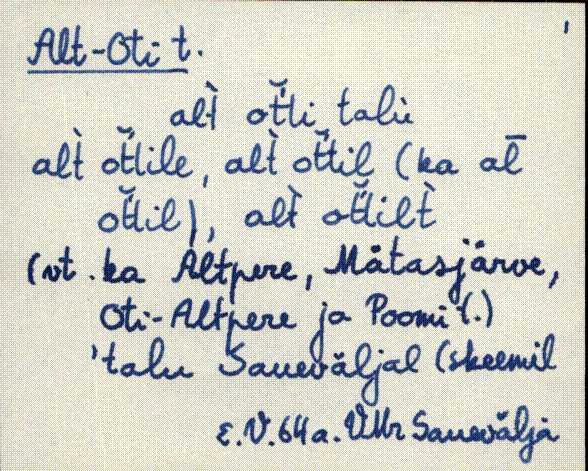 Alt-Oti t.
alt̀ ot̆ti talu
alt̀ ot̆tile, alt̀ ot̆til (ka al̄
ot̆til), alt̀ ot̆tilt̀
(vt. ka Altpere, Mätasjärve,
Oti-Altpere ja Poomi t.)
'talu Saueväljal (skeemil
E.V. 64 a. VMr Sauevälja